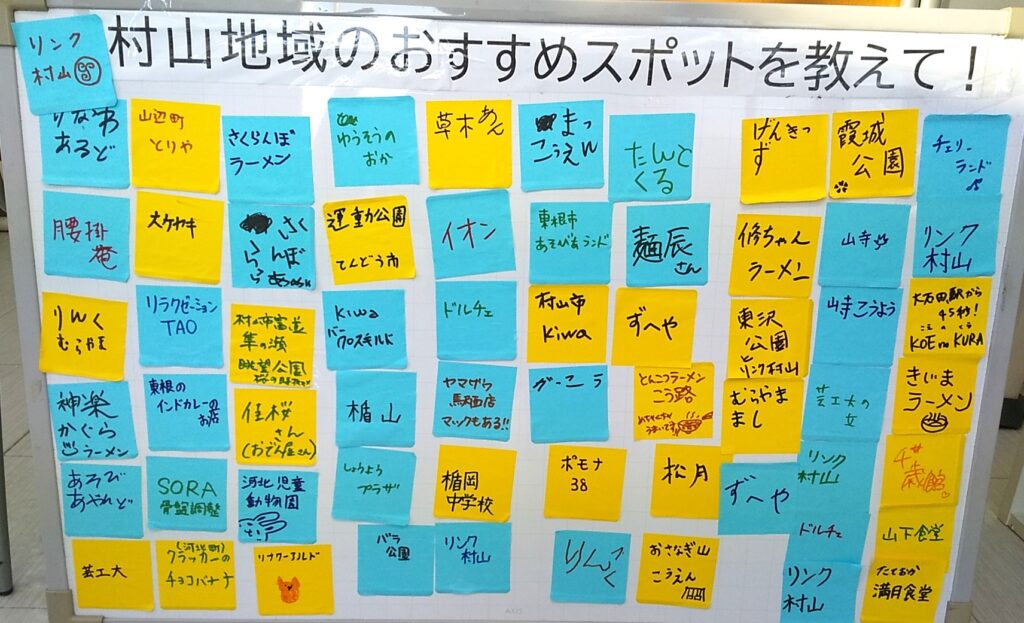 村山地域のおすすめスポットを教えて!
リンク
村山
山辺町
とりや
さくらんぼ
ラーメン
ゆうそうの
おか
草木あん
まっ
こうえん
たんと
くる
げんきっ
ず
霞城
公園
チェリー
ランド
腰掛
庵
大ケヤキ
さく
らんぼ
運動公園
てんどう市
イオン
東根市
あそびあランド
麺辰
さん
修ちゃん
ラーメン
山寺
リンク
村山
りんく
むらやま
リラクゼーション
TAO
村山市富並
隼の瀬
眺望公園
kiwa
ドルチェ
村山市
kiwa
ずへや
東沢
公園
と
リンク村山
山寺こうよう
大石田駅から
45秒!
KOE no KURA
神楽
かぐら
ラーメン
東根の
インドカレーの
お店
佳桜
さん
(おでん屋さん)
楯山
ヤマザワ
マックもある!!
がーこう
とんこつラーメン
こう路
めちゃんちゃ
うまいです
むらやま
まし
芸工大の
立
きじま
ラーメン
あそび
あやれど
SORA
骨盤調整
河北児童
動物園
しょうよう
プラザ
楯岡
中学校
ポモナ
38
松月
ずへや
リンク
村山
千歳館
芸工大
(河北町)
クラッカーの
チョコバナナ
リナワールド
バラ
公園
リンク
村山
りんく
おさなぎ山
こうえん
ドルチェ
山下食堂
リンク
村山
たておか
満月食堂